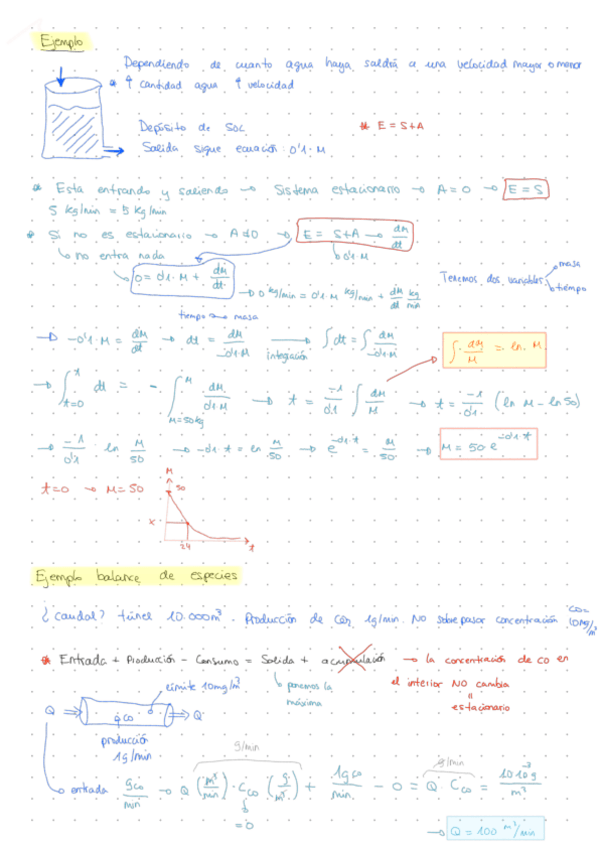 Ejemplo
Dependiendo de cuanto agua haya, saldrá a una velocidad mayor o menor
* ↑ cantidad agua ↑ velocidad
Depósito de 50L
* E = S+A
Salida sigue ecuación: 0'1·M
* Está entrando y saliendo → Sistema estacionario → A=0 → E=S
5 kg/min = 5 kg/min
* Si no es estacionario → A≠0 → E = S+A → dM/dt
↳ no entra nada
↳ 0'1·M
↳ 0 = 0'1·M + dM/dt
→ 0 kg/min = 0'1·M kg/min + dM/dt kg/min
Tenemos dos variables
masa
tiempo
tiempo masa
→ -0'1·M = dM/dt → dt = dM/-0'1·M → integración ∫dt = ∫ dM/-0'1·M
∫ dM/M = ln M
→ ∫ t=0 t dt = - ∫ M=50kg M dM/0'1·M → t = -1/0'1 ∫ dM/M → t = -1/0'1 (ln M - ln 50)
→ -1/0'1 ln M/50 → -0'1·t = ln M/50 → e^-0'1·t = M/50 → M = 50·e^-0'1·t
t=0 → M=50
M
50
x
24
t
Ejemplo balance de especies
¿Caudal? túnel 10.000m³. Producción de CO, 1g/min. NO sobrepasar concentración CO= 10mg/m³
* Entrada + Producción - Consumo = Salida + acumulación → la concentración de CO en
el interior NO cambia
=
estacionario
↳ ponemos la
máxima
límite 10mg/m³
Q ⇒ gco ⇒ Q
producción
1g/min
g/min
g/min
↳ entrada gco/min → Q (m³/min) · Cco (g/m³) + 1gco/min - 0 = Q Cco = 10·10⁻³g/m³
=0
→ Q = 100 m³/min